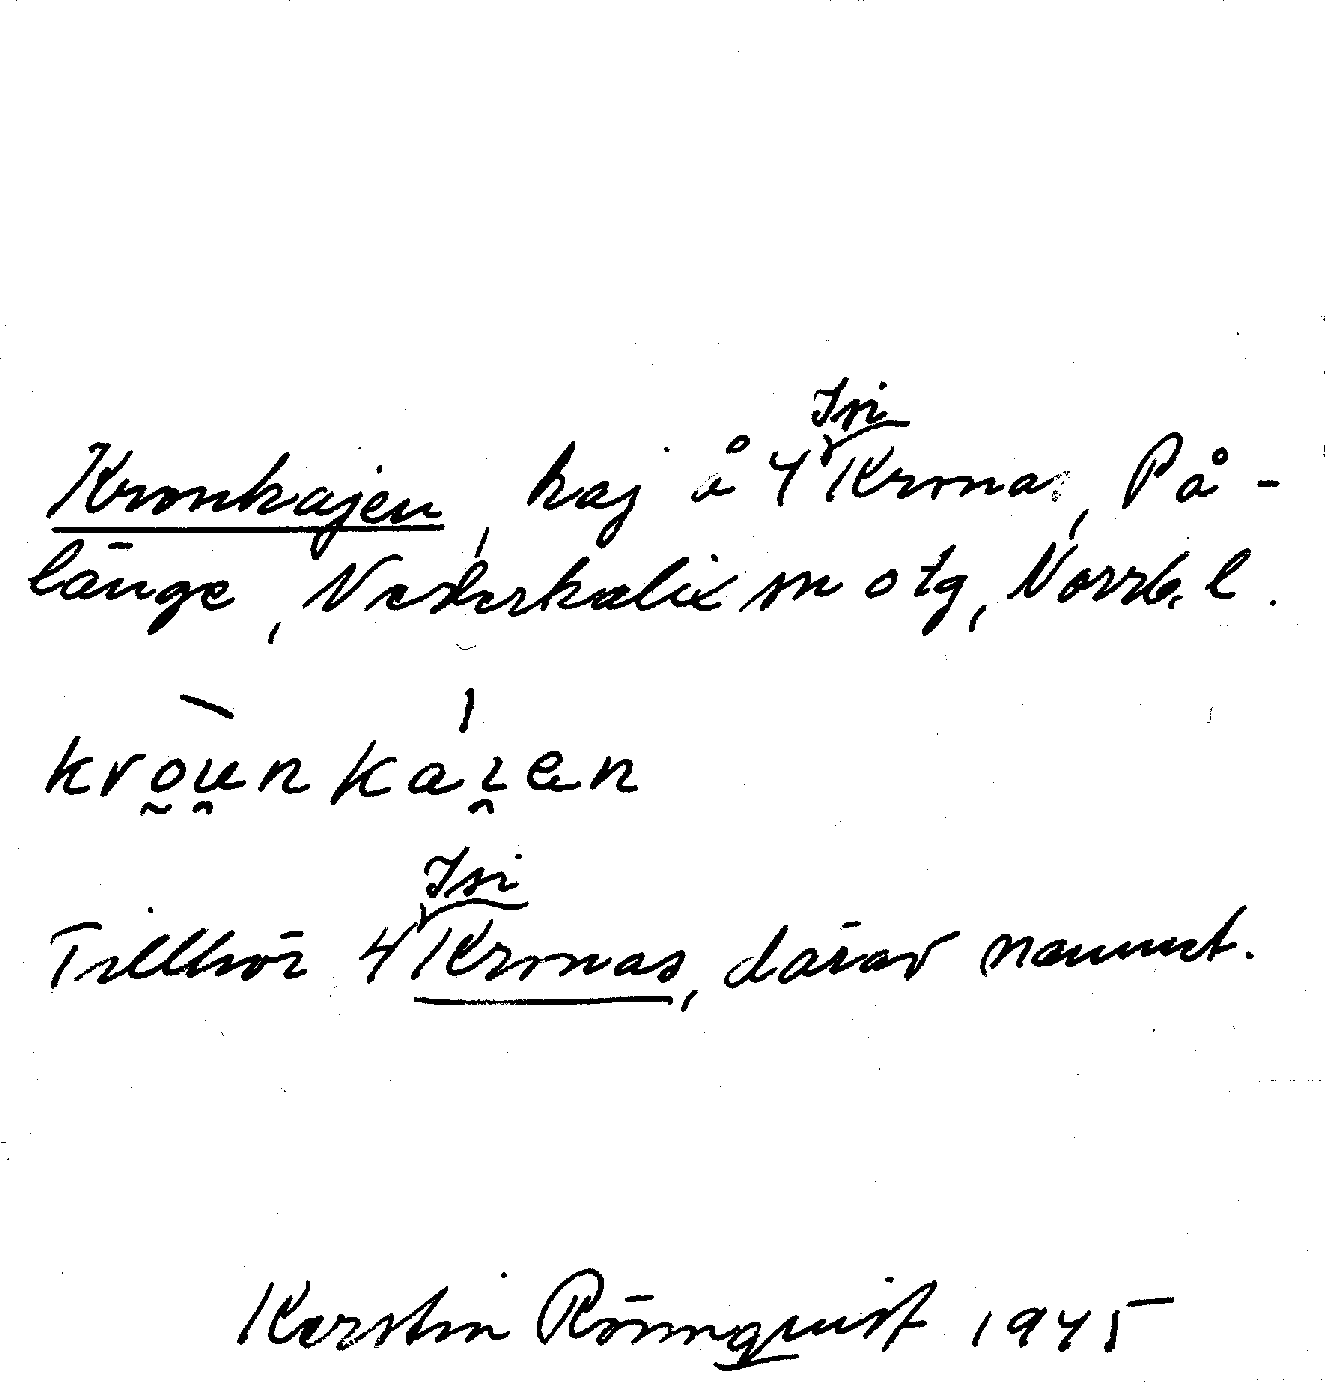 Isi
Kronkajen, kaj å 4 Kronas, På-
länge, Nederkalix sn o tg, Norrb. l.
kròunkáɪen
Isi
Tillhör 4 Kronas, därav namnet.
Kerstin Rönnquist 1945